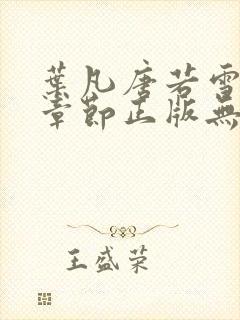 葉凡唐若雪
章節正版無
王盛荣